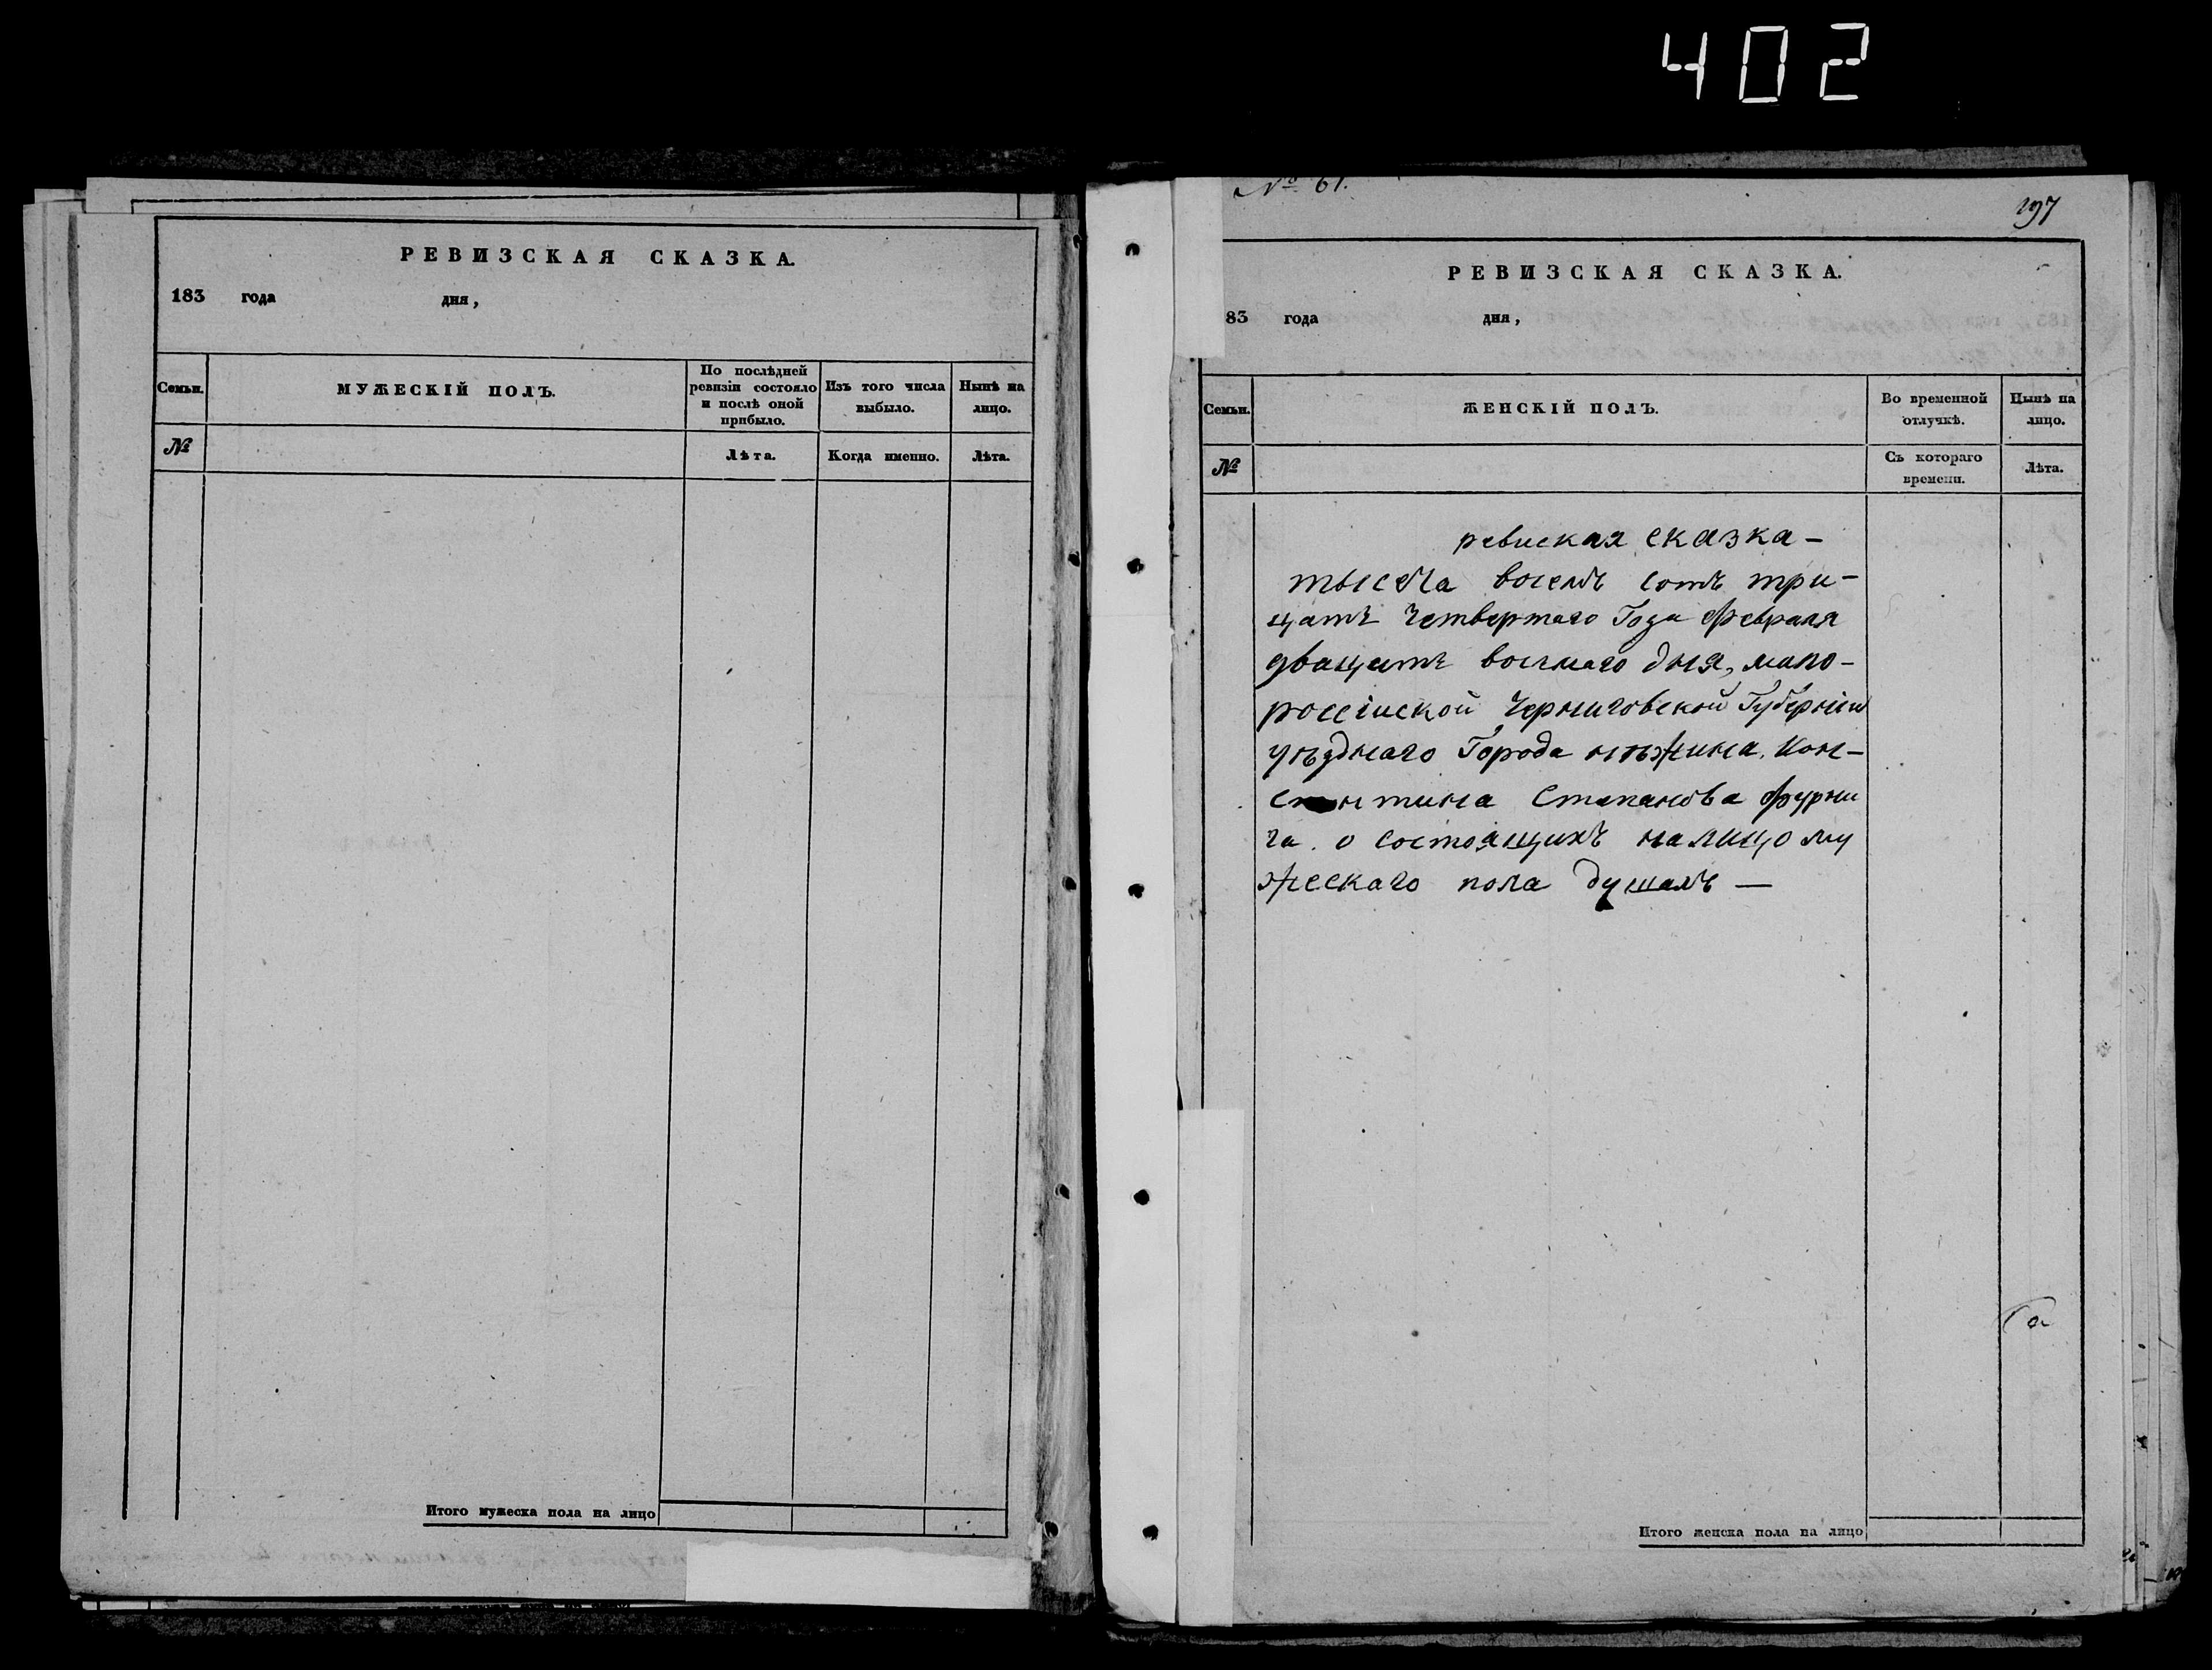 402
РЕВИЗСКАЯ СКАЗКА.
183 года дня,
Семьи. МУЖЕСКІЙ ПОЛЪ. По послѣдней ревизіи состояло и послѣ оной прибыло. Изъ того числа выбыло. Нынѣ на лицо.
№ Лѣта. Когда именно. Лѣта.
Итого мужеска пола на лицо
№ 61.
197
РЕВИЗСКАЯ СКАЗКА.
83 года дня,
Семьи. ЖЕНСКІЙ ПОЛЪ. Во временной отлучкѣ. Нынѣ на лицо.
№ Съ котораго времени. Лѣта.
ревиская сказка —
тысеча восемъ сотъ три-
цатъ Четвертаго Года Февраля
двацатъ восмаго дня, мало-
россіиской Черниговской Губерніи
уѣзднаго Города нѣжина. Кон-
стянтина Степанова Фурни
га. о состоящихъ налицо му
жескаго пола душахъ —
Итого женска пола на лицо